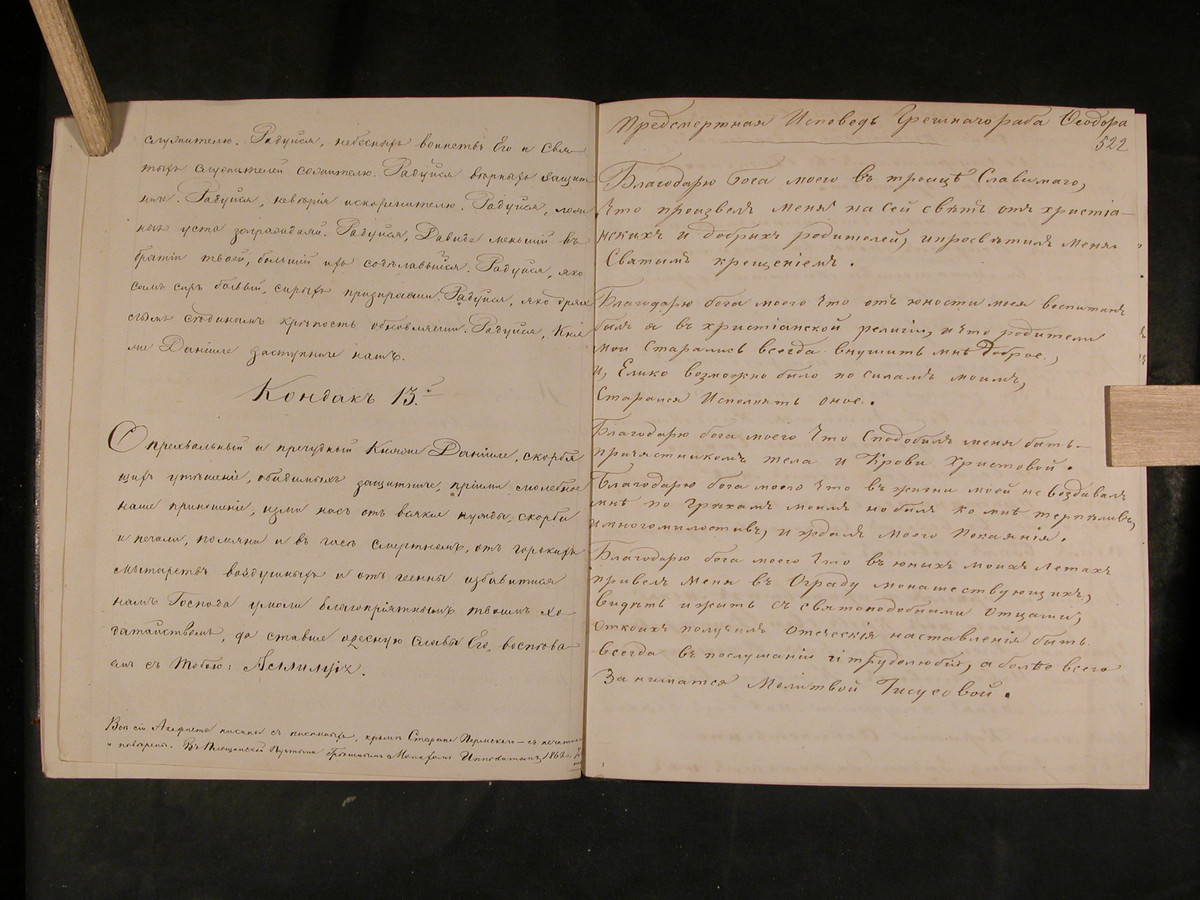 служителю. Радуйся, небесныхъ воинствъ Его и Свя-
тыхъ служителей сожителю. Радуйся вѣрныхъ защит
ниче. Радуйся, невѣрія искоренителю. Радуйся,
ныхъ уста заградивый. Радуйся, Давиде меньшій въ
братіи твоей, большій ихъ содѣлавыйся. Радуйся, яко
самъ сиръ бывый, сирыхъ призираеши. Радуйся, яко
сѣдинамъ крѣпость обновляеши. Радуйся, Кня
же Даніиле заступниче нашъ.
Кондакъ 13.й
О прехвальный и пречудный Княже Даніиле, скорбя
щихъ утѣшеніе, обидимыхъ защитниче, пріими молебное
наше приношеніе, изми насъ отъ всякія нужды, скорби
и печали, помяни и въ часъ смертномъ, отъ горькихъ
мытарствъ воздушныхъ и отъ геенны избавитися
намъ Господа умоли благопріятнымъ твоимъ хо-
датайствомъ, да ставше одесную славы Его, воспѣва-
емъ съ Тобою: Аллилуіа.
Вси сіи Акафисты писаны съ писанныхъ, кромѣ Стефана Пермскаго — съ печатна
го и повѣрены. Въ Площанской Пустыни Грѣшнымъ Монахомъ Ипполитомъ, 186
Предсмертная Исповедь Грешнаго раба Ѳеодора
522
Благодарю бога моего въ троицѣ Славимаго,
Что произвелъ меня на сей свѣтъ отъ христіа-
нскихъ и добрыхъ родителей, и просвѣтилъ меня
Святымъ крещеніемъ.
Благодарю бога моего Что отъ юности моея воспитанъ
былъ я въ христіанской религіи, и что родители
мои Старались всегда внушить мнѣ доброе,
и, Елико возможно было по силамъ моимъ,
Старался Исполнять оное.
Благодарю бога моего Что Сподобилъ меня быть
причястникомъ тела и Крови Христовой.
Благодарю бога моего Что въ жизни моей не воздавалъ
мнѣ по Грѣхамъ моимъ но былъ ко мнѣ терпѣливъ,
и многомилостивъ, и ждалъ моего Покаянія.
Благодарю бога моего Что въ юныхъ моихъ Летахъ
привелъ меня въ Ограду монашествующихъ,
видѣть и жить съ святоподобными Отцами,
Откоихъ получилъ Отеческія наставленія быть
всегда въ послушаніи и трудолюбіи, а болѣе всего
Заниматся Молитвой Іисусовой.